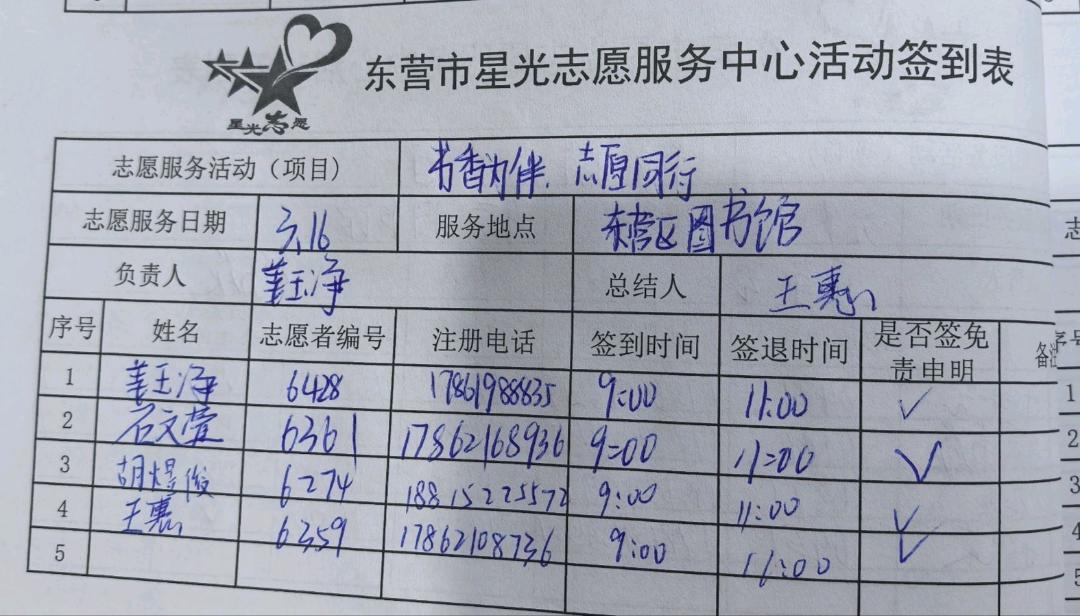 星光志愿
东营市星光志愿服务中心活动签到表
志愿服务活动（项目） 书香为伴、志愿同行
志愿服务日期 3.16 服务地点 东营区图书馆
负责人 姜玉净 总结人 王惠
序号 姓名 志愿者编号 注册电话 签到时间 签退时间 是否签免责申明 备注
1 姜玉净 6428 17861988835 9:00 11:00 ✓
2 石文萱 6361 17862168936 9:00 11:00 ✓
3 胡煜俊 6274 18815225572 9:00 11:00 ✓
4 王惠 6359 17862108736 9:00 11:00 ✓
5
志
序号
1
2
3
4
5